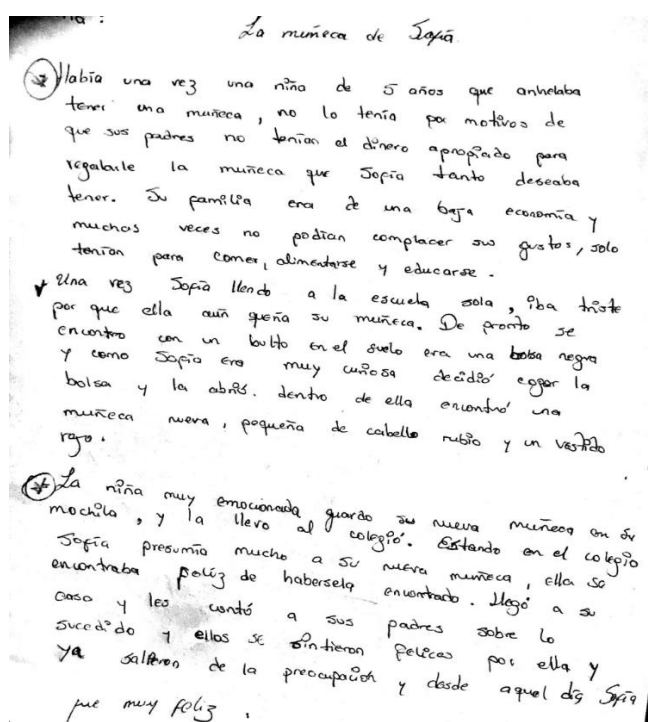 La muñeca de Sofía
Había una vez una niña de 5 años que anhelaba
tener una muñeca, no lo tenía por motivos de
que sus padres no tenían el dinero apropiado para
regalarle la muñeca que Sofía tanto deseaba
tener. Su familia era de una baja economía y
muchas veces no podían complacer sus gustos, solo
tenían para comer, alimentarse y educarse.
Una vez Sofía llendo a la escuela sola, iba triste
por que ella aún quería su muñeca. De pronto se
encontro con un bulto en el suelo era una bolsa negra
y como Sofía era muy curiosa decidió coger la
bolsa y la abrió. dentro de ella encontró una
muñeca nueva, pequeña de cabello rubio y un vestido
rojo.
La niña muy emocionada guardo su nueva muñeca en su
mochila, y la llevo al colegió. Estando en el colegio
Sofía presumía mucho a su nueva muñeca, ella se
encontraba feliz de habersela encontrado. Llegó a su
casa y les contó a sus padres sobre lo
sucedido y ellos se sintieron felices por ella y
ya salieron de la preocupación y desde aquel día Sofía
fue muy feliz.